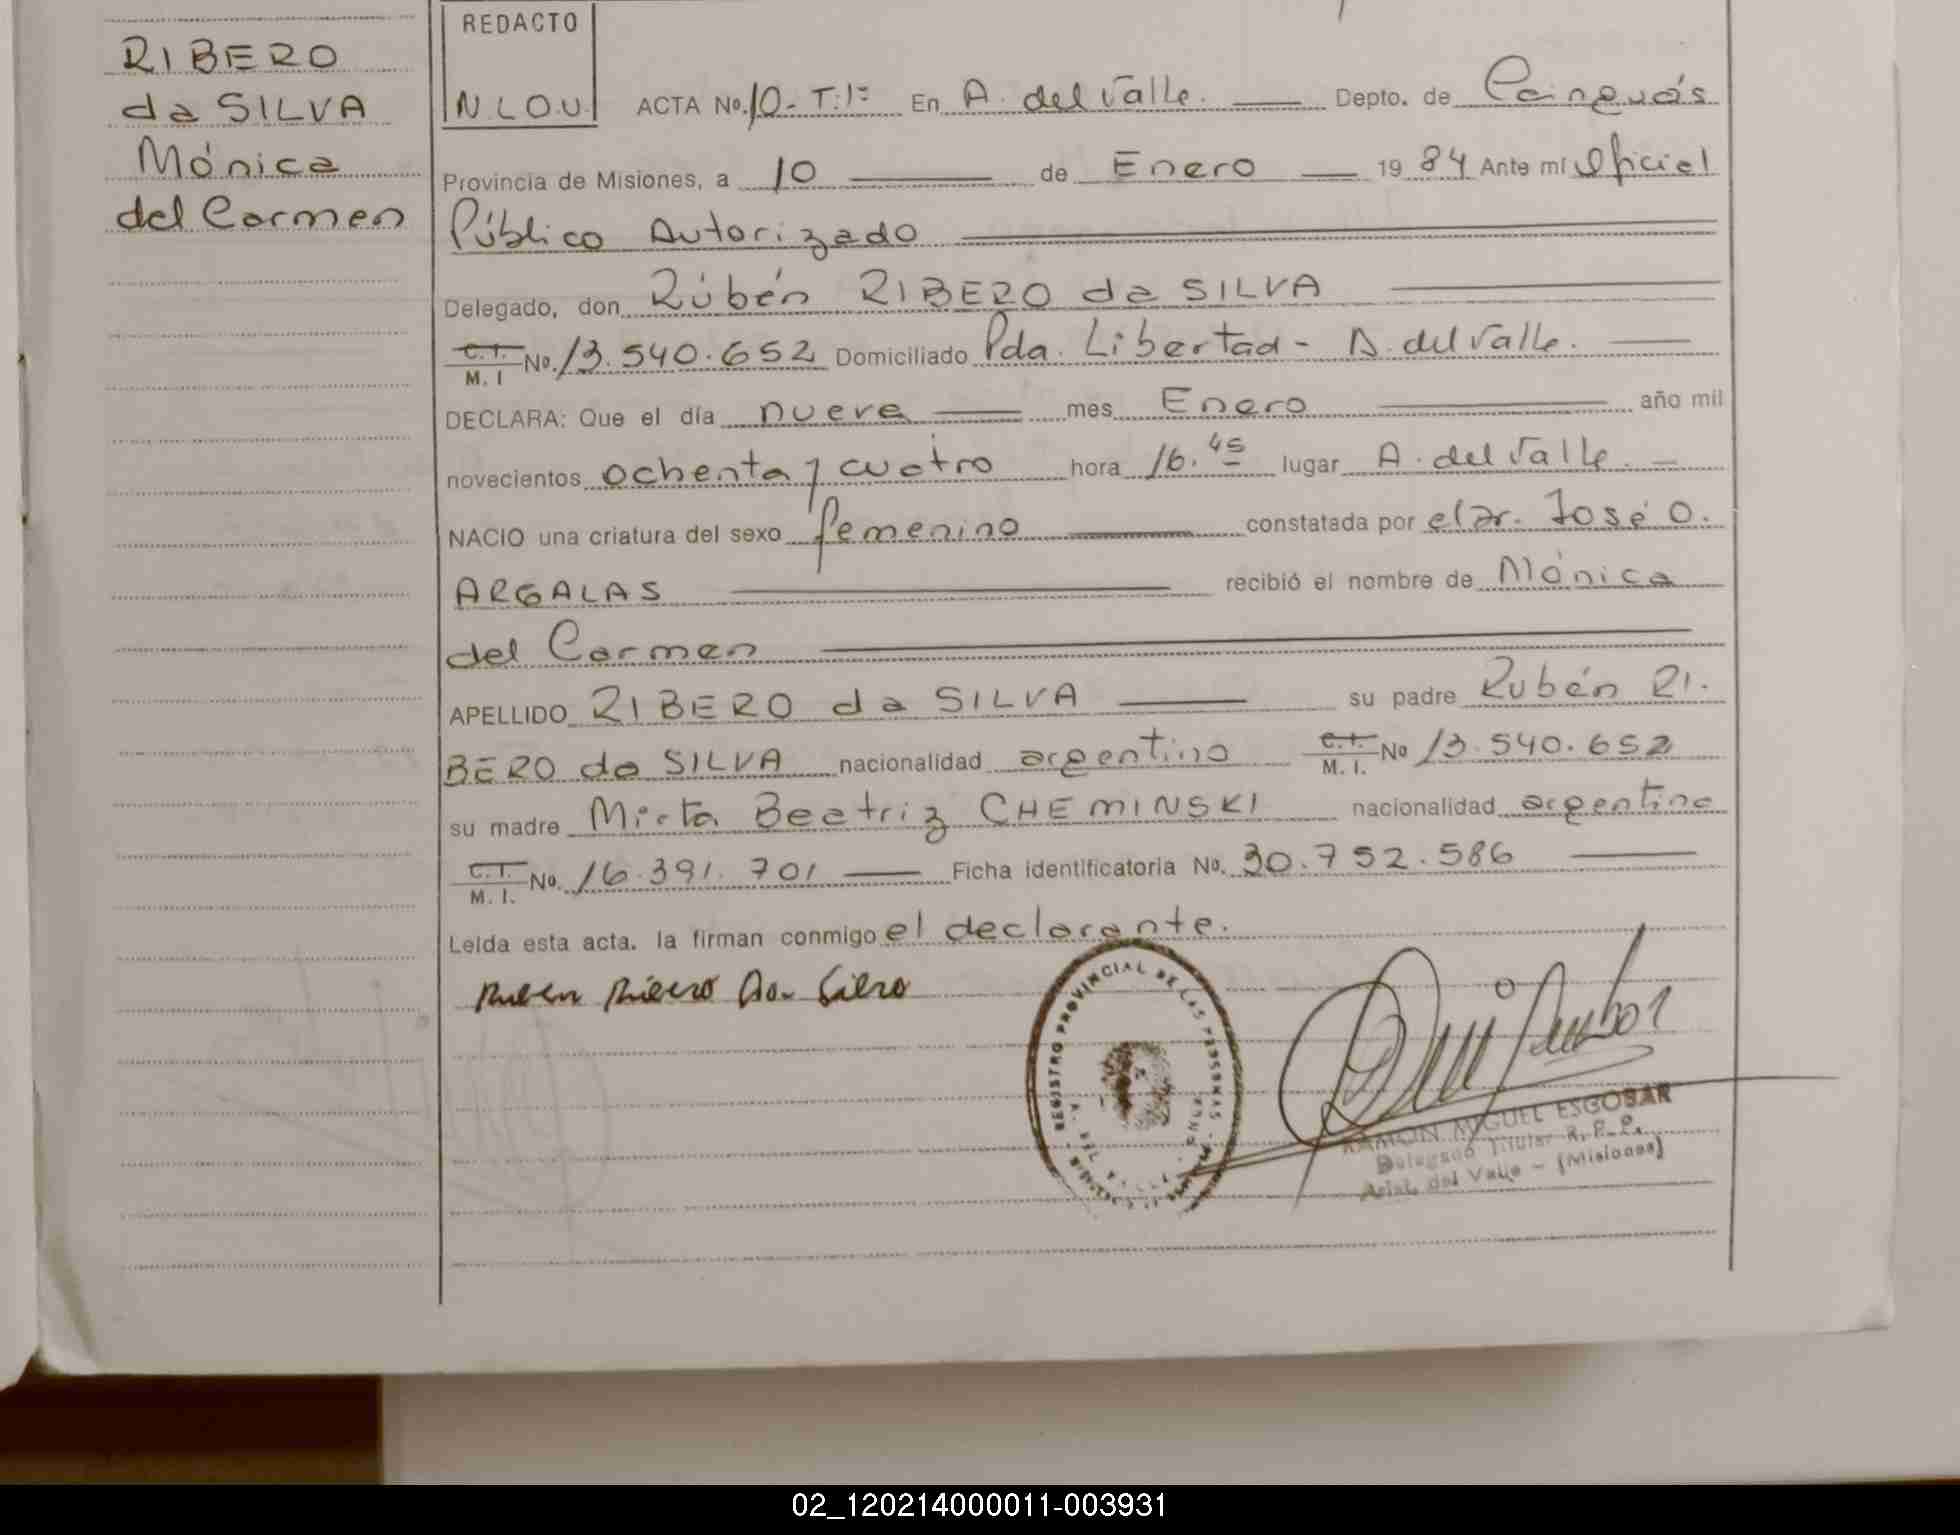 RIBERO
da SILVA
Mónica
del Carmen
REDACTO
N.L.O.U.
ACTA No. 10- T:1º En A. del Valle. Depto. de Cainguás
Provincia de Misiones, a 10 de Enero 19 84 Ante mí Oficial
Público Autorizado
Delegado, don Rúbén RIBERO da SILVA
C.I. M. I No. 13.540.652 Domiciliado Pda. Libertad - A. del Valle.
DECLARA: Que el día nueve mes Enero año mil
novecientos ochenta y cuatro hora 16.45 lugar A. del Valle.
NACIO una criatura del sexo femenino constatada por el Dr. José O.
ARGALAS recibió el nombre de Mónica
del Carmen
APELLIDO RIBERO da SILVA su padre Rubén RI.
BERO da SILVA nacionalidad argentino C.I. M. I. No 13.540.652
su madre Mirta Beatriz CHEMINSKI nacionalidad argentina
C.I. M. I. No. 16.391.701 Ficha identificatoria No. 30.752.586
Leida esta acta. la firman conmigo el declarante.
Ruben Ribero Da Silva
REGISTRO PROVINCIAL DE LAS PERSONAS
RAMON MIGUEL ESCOBAR
Delegado Titular R. P. P.
Arist. del Valle - (Misiones)
02_120214000011-003931